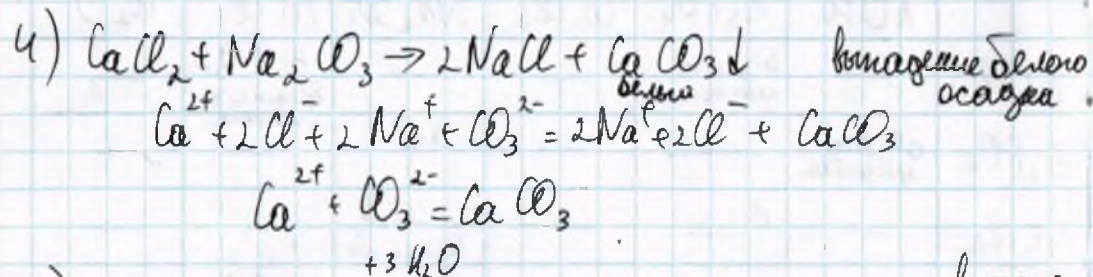 4) CaCl₂ + Na₂CO₃ → 2NaCl + CaCO₃↓ выпадение белого
белый осадка.
Ca²⁺ + 2Cl⁻ + 2Na⁺ + CO₃²⁻ = 2Na⁺ + 2Cl⁻ + CaCO₃
Ca²⁺ + CO₃²⁻ = CaCO₃
+3H₂O